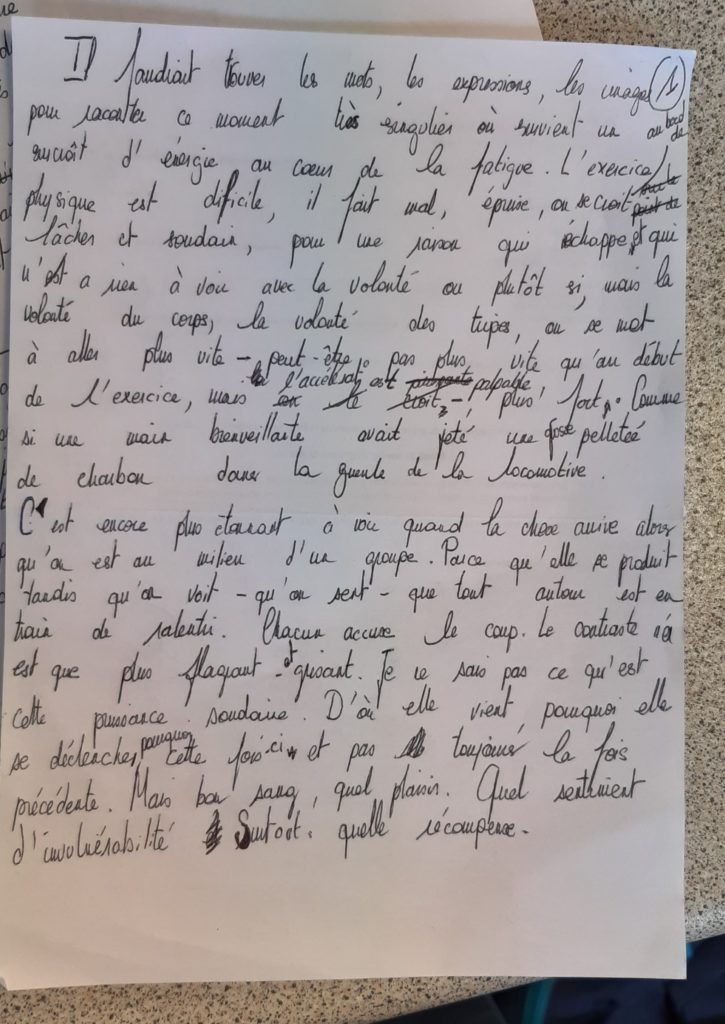 Il faudrait trouver les mots, les expressions, les images 1
pour raconter ce moment très singulier où survient un
surcroît d'énergie au coeur de la fatigue. L'exercice
physique est difficile, il fait mal, épuise, on se croit au bord de
lâcher et soudain, pour une raison qui échappe, et qui
n'est a rien à voir avec la volonté ou plutôt si, mais la
volonté du corps, la volonté des tripes, on se met
à aller plus vite - peut-être pas plus vite qu'au début
de l'exercice, mais l'accélérat° est palpable -, plus fort. Comme
si une main bienveillante avait jeté une grosse pelletée
de charbon dans la gueule de la locomotive.
C'est encore plus étonnant à voir quand la chose arrive alors
qu'on est au milieu d'un groupe. Parce qu'elle se produit
tandis qu'on voit - qu'on sent - que tout autour est en
train de ralentir. Chacun accuse le coup. Le contraste n'
est que plus flagrant et grisant. Je ne sais pas ce qu'est
cette puissance soudaine. D'où elle vient, pourquoi elle
se déclenche, pourquoi cette fois-ci et pas toujours la fois
précédente. Mais bon sang, quel plaisir. Quel sentiment
d'invulnérabilité Surtout. quelle récompense.